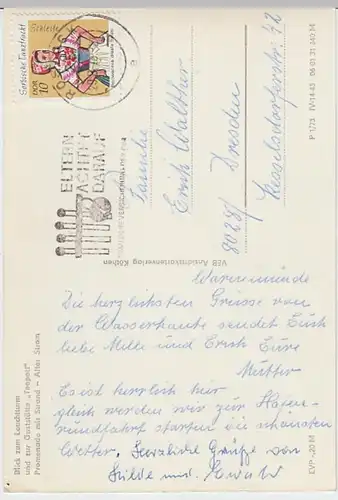 Sorbische Tanztracht
Schleife
DDR
10
ROSTOCK
ELTERN
ACHTET
DARAUF
Familie
Erich Walther
8028 / Dresden
Kesselsdorferstr. 42
VEB Ansichtskartenverlag Köthen
P 1/73 IV-14-43
Warnemünde
Die herzlichsten Grüsse von
der Wasserkante sendet Euch
liebe Mille und Erich Eure
Mutter
Es ist herrlich hier
gleich werden wir zur Hafen-
rundfahrt starten die schönsten
Wetter. Herzliche Grüße von
Hilde und
Blick zum Leuchtturm
und zur Gaststätte „Teepott"
Promenade mit Strand – Alter Strom
EVP -,20 M